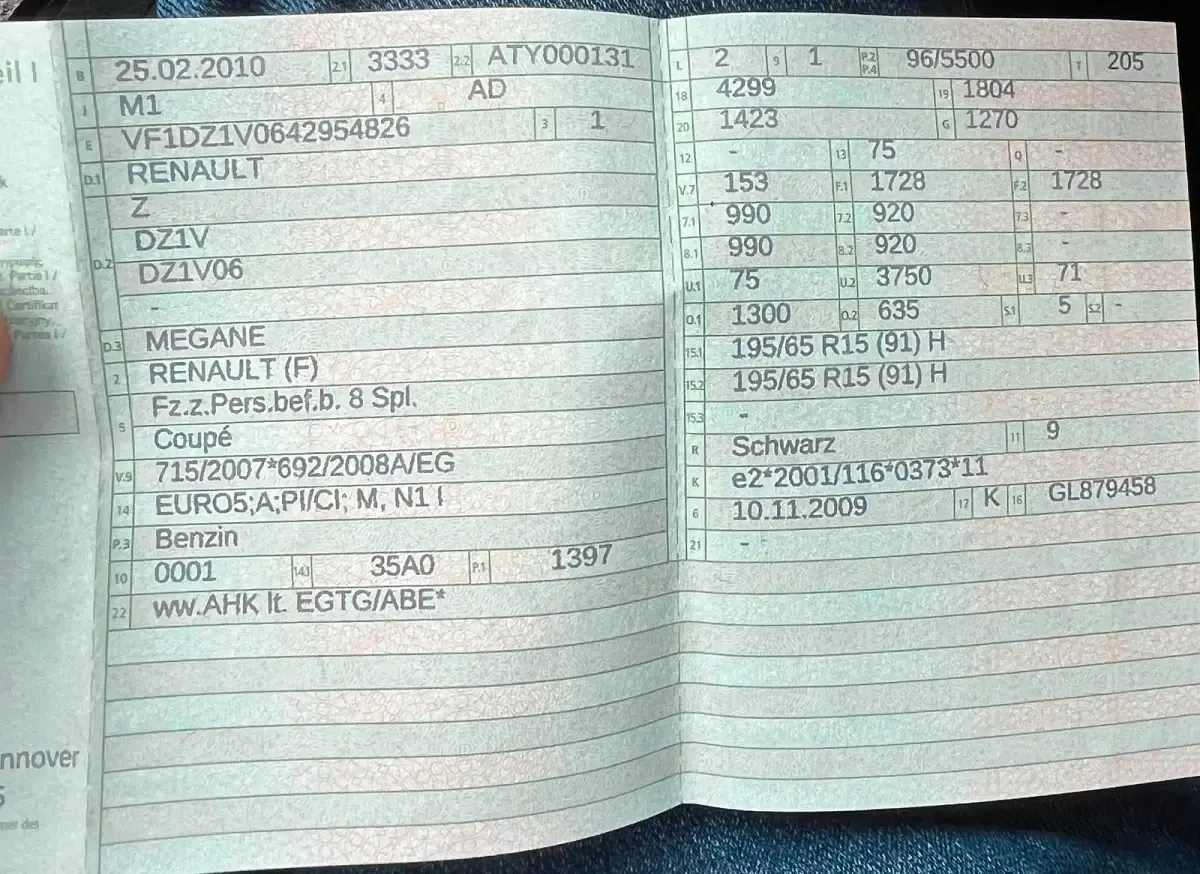 eil I
B 25.02.2010 2.1 3333 2.2 ATY000131
J M1 4 AD
E VF1DZ1V0642954826 3 1
D.1 RENAULT
Z
DZ1V
D.2 DZ1V06
-
D.3 MEGANE
2 RENAULT (F)
Fz.z.Pers.bef.b. 8 Spl.
5 Coupé
V.9 715/2007*692/2008A/EG
14 EURO5;A;PI/CI; M, N1 I
P.3 Benzin
10 0001 14.1 35A0 P.1 1397
22 ww.AHK lt. EGTG/ABE*
L 2 9 1 P.2 P.4 96/5500 T 205
18 4299 19 1804
20 1423 G 1270
12 - 13 75 Q -
V.7 153 F.1 1728 F.2 1728
7.1 990 7.2 920 7.3 -
8.1 990 8.2 920 8.3 -
U.1 75 U.2 3750 U.3 71
O.1 1300 O.2 635 S.1 5 S.2 -
15.1 195/65 R15 (91) H
15.2 195/65 R15 (91) H
15.3 -
R Schwarz 11 9
K e2*2001/116*0373*11
6 10.11.2009 17 K 16 GL879458
21 -
nnover